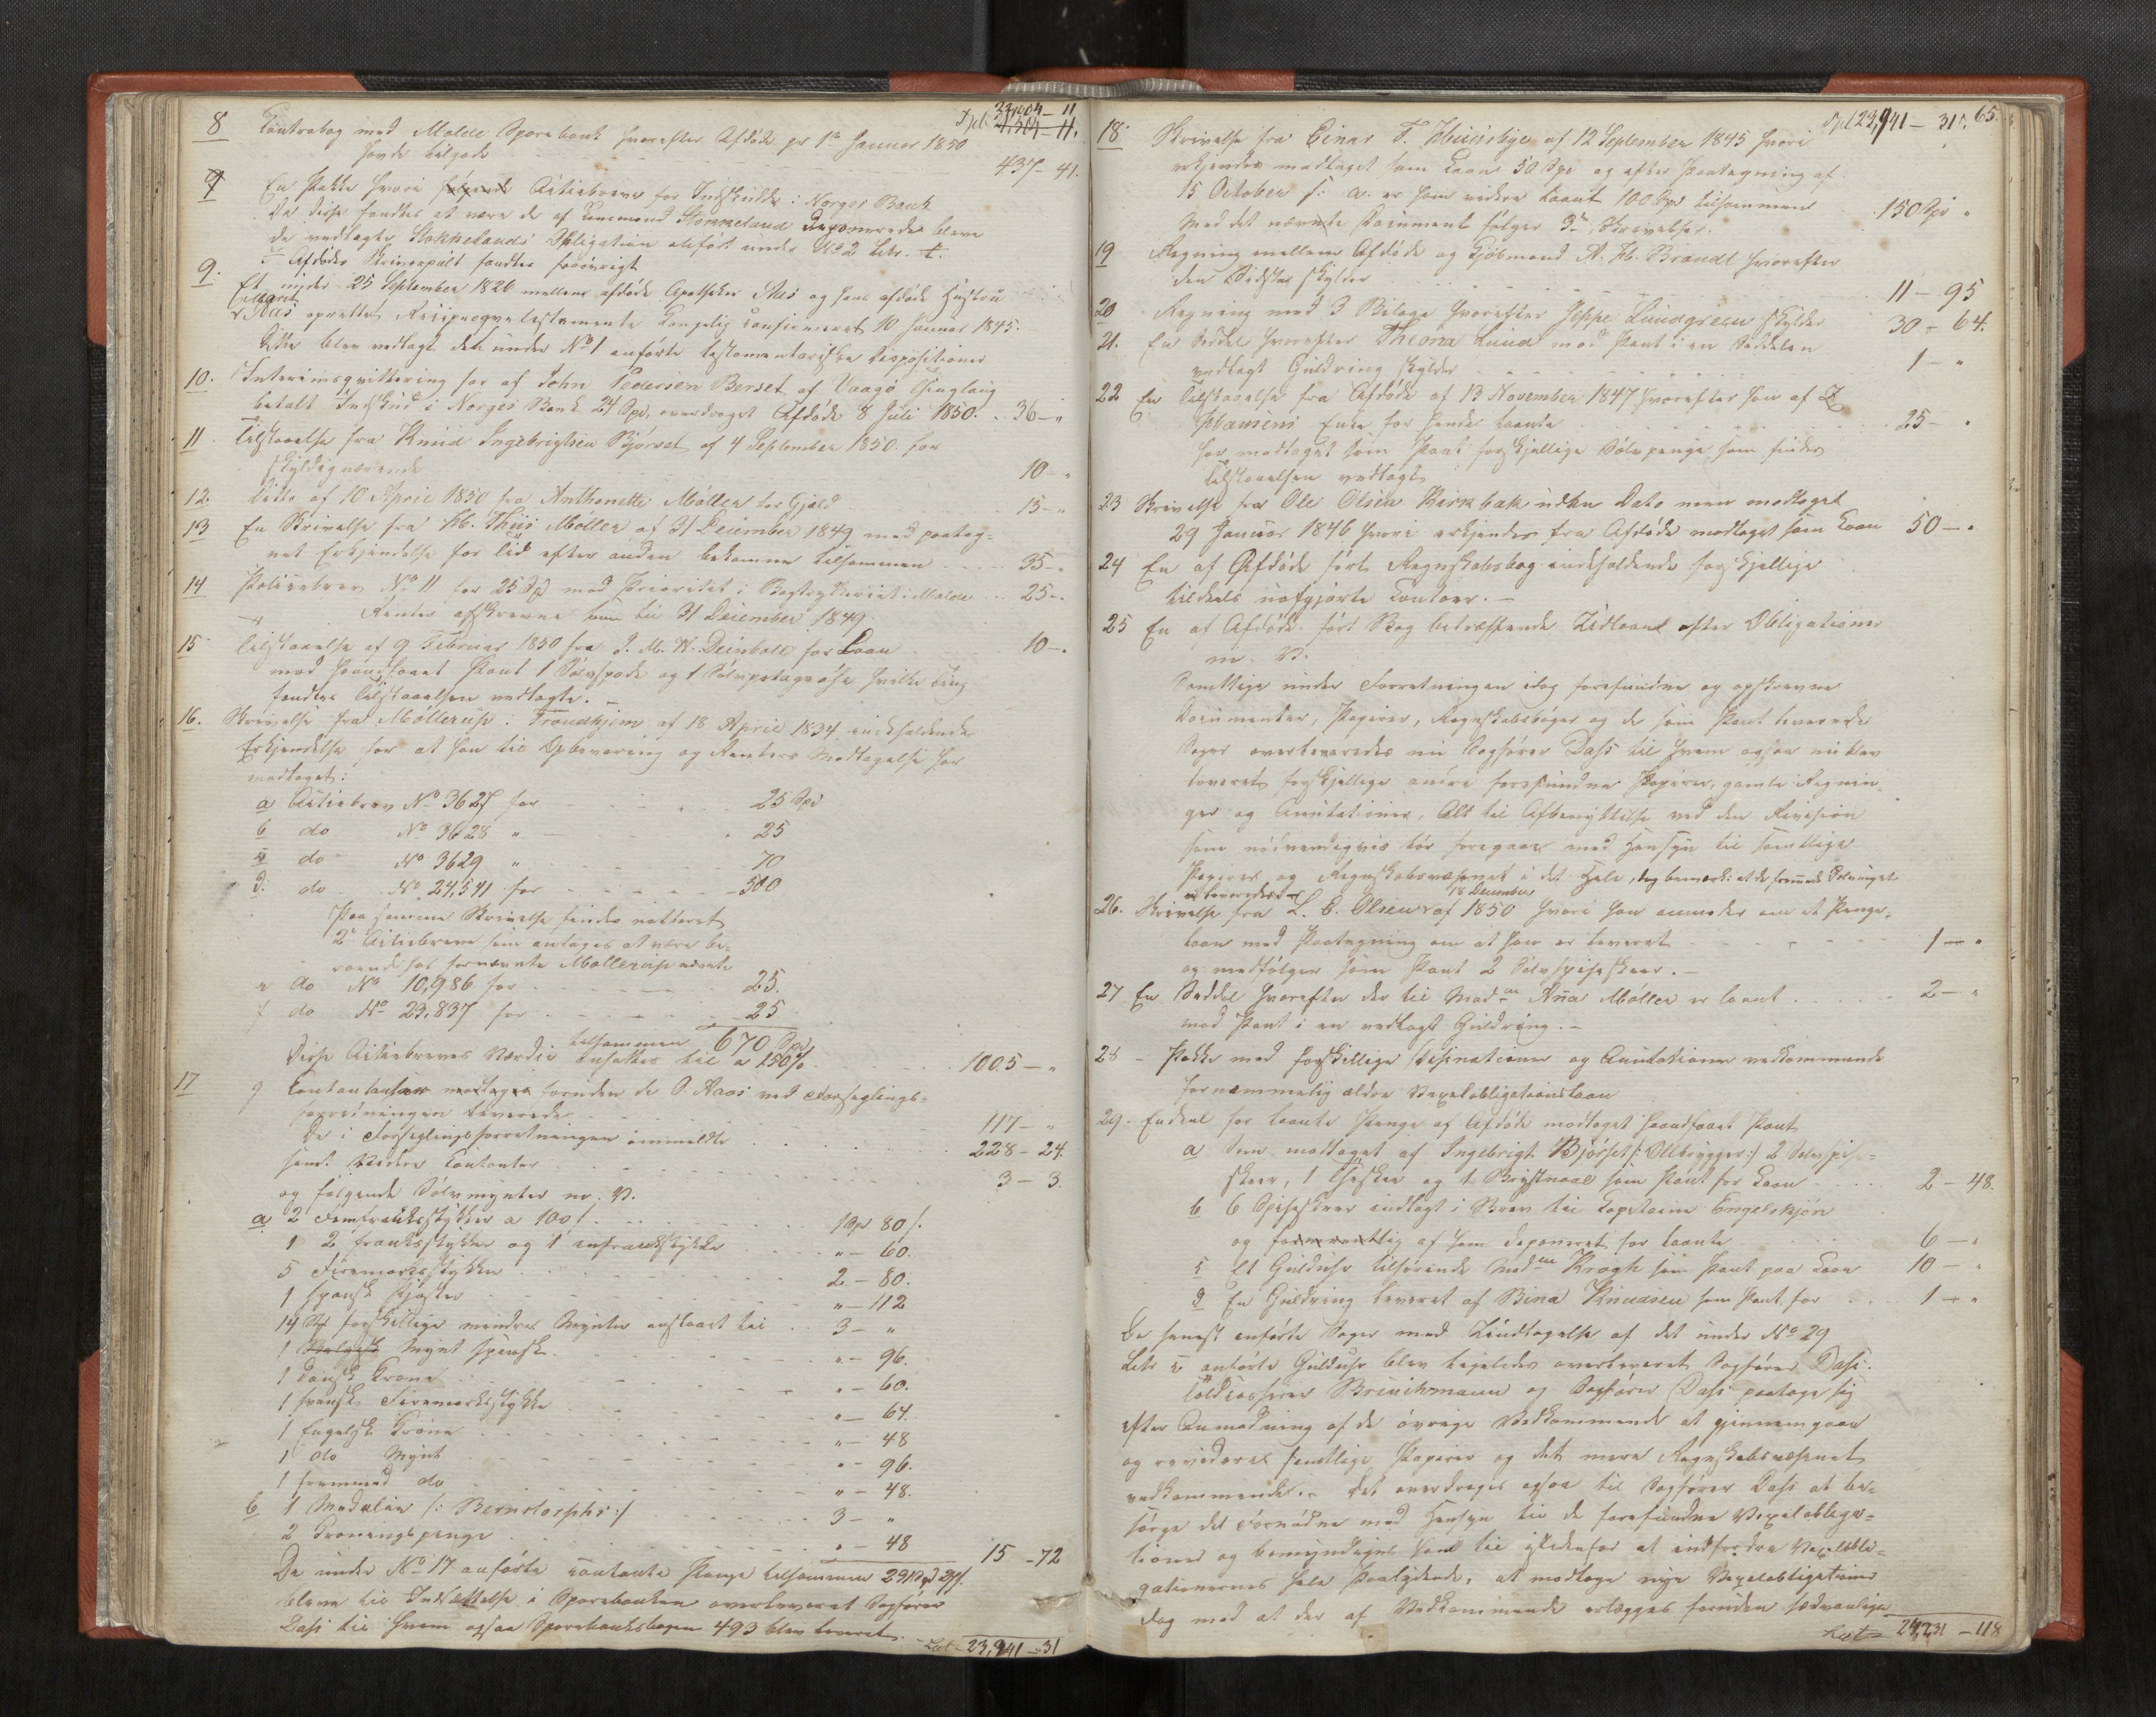 Spd. 23,404 - 11
8 Contrabog med Molde Sparebank hvorefter Afdøde pr 1ste Januar 1850
havde tilgode 437 - 41.
En Pakke hvori følgende Actiebreve for Indskudde i Norges Bank
Da disse fandtes at være de af Lensmand Stokkeland deponerede bleve
de vedlagte Stokkelands Obligation anført under No 2 Litr. t.
I Afdødes Skriverpult fandtes forøvrigt
9. Et under 25 September 1826 mellem afdøde Apotheker Aas og hans afdøde Hustru
Aas oprettet Reciproqve testamente Kongelig confirmeret 10 Januar 1845.
Dette blev vedlagt den under No 1 anførte testamentariske Disposition
10. Interimsqvittering for af John Pedersen Berset af Vaagø Thinglaug
betalt Indskud i Norges Bank 24 Spd, overdraget Afdøde 8 Juli 1850. 36 - "
11. Tilstaaelse fra Knud Ingebrigtsen Bjørset af 4 September 1850 for
skyldigværende 10 "
12. Ditto af 10 April 1850 fra Anthonette Møller for Gjæld 15 - "
13 En Skrivelse fra Th. Thiis Møller af 31 December 1849 med paateg=
net Erkjendelse for Tid efter anden bekomne tilsammen 35 - "
14 Partiebrev No 11 for 25 Spd med Prioritet i Bogtrykkeriet i Molde 25 - "
Renter afskrevne til 31 December 1849.
15 Tilstaaelse af 9 Februar 1850 fra J. M. W. Deinboll for Laan 10 - "
mod haandfaaet Pant 1 Sølvspade og 1 Sølvpotageøse hvilke Ting
fandtes Tilstaaelsen vedlagte. -
16. Skrivelse fra Møllerup i Trondhjem af 18 April 1834 indeholdende
Erkjendelse for at han til Opbevaring og Renters Modtagelse har
modtaget:
a Actiebrev No 3627 for 25 Spd
b do No 3628 " 25
c do No 3629 " 70
d. do No 24,541 for 500
Paa samme Skrivelse findes noteret
2de Actiebreve som antages at være be=
roende hos fornævnte Møllerup nemlig
e do No 10,986 for 25.
f do No 23,837 for 25
tilsammen 670 Spd
Disse Actiebreves Værdie ansattes til a 150% 1005 - "
17 Contanter foruden de P. Aas ved Forseglings=
forretningen leverede 117 - "
De i Forseglingsforretningen ommeldte 228 - 24.
samt Videre Contanter 3 - 3.
og følgende Sølvmynter m. V.
a 2 Femfrankstykker a 100 s. 1 Spd 80 s.
1 2 frankstykke og 1 enfrankstykke " - 60.
5 Firemarksstykker 2 - 80.
1 Spansk Pjaster " - 112
14 St forskjellige mindre Mynter anslaaet til 3 - "
1 Mynt spansk " - 96.
1 Dansk Krone " - 60.
1 svensk Firemarksstykke " - 64.
1 Engelsk Krone " - 48
1 do Mynt " - 96.
1 fremmed do " - 48.
b 1 Medalie /: Bernstorphs :/ 3 - "
2 Kroningspenge " - 48
15 - 72
De under No 17 anførte contante Penge tilsammen
bleve til Indsættelse i Sparebanken overleveret Sagfører
Dahs til hvem ogsaa Sparebanksbogen 493 blev leveret.
Lat. 23,941 - 31
65.
Spd 23,941 - 31 s.
18 Skrivelse fra Einar T. af 12 September 1845 hvori
erkjendes modtaget som Laan 50 Spd og efter Paategning af
15 October s: a. er ham videre laant 100 Spd tilsammen 150 Spd "
Med det nævnte Document følger 3de Skrivelser.
19 Regning mellem Afdøde og Kjøbmand A. H. Brandt hvorefter
den Sidste skylder 11 - 95
20 Regning med 3 Bilage hvorefter Jeppe Lundgreen skylder 30 - 64.
21. En Seddel hvorefter Theona Lund mod Pant i en Seddelen
vedlagt Guldring skylder 1 - "
22 En Tilstaaelse fra Afdøde af 13 November 1847 hvorefter han af
Hansens Enke for hende laante 25 - "
har modtaget som Pant forskjellige Sølvpenge som findes
Tilstaaelsen vedlagt
23 Skrivelse fra Ole Olsen Kirkbak uden Dato men modtaget
29 Januar 1846 hvori erkjendes fra Afdøde modtaget som Laan 50 - "
24 En af Afdøde ført Regnskabsbog indeholdende forskjellige
tildeels uopgjorte Contoer. -
25 En af Afdøde ført Bog betræffende Udlaan efter Obligationer
m. V.
Samtlige under Forretningen idag forefundne og opskrevne
Documenter, Papirer, Regnskabsbøger og de som Pant leverede
Sager overleveredes nu Sagfører Dahs til hvem ogsaa nu blev
leveret forskjellige andre forefundne Papirer, gamle Regnin=
ger og Anotationer, Alt til Afbenyttelse ved den Revision
som nødvendigvis bør foregaae med Hensyn til samtlige
Papirer og Regnskabsvæsenet i det Hele,
26. Skrivelse fra L. E. Olsen af 18 December 1850 hvori han anmoder om et Penge=
laan med Paategning om at han er leveret 1 - "
og medfølger som Pant 2 Sølvspiseskeer. -
27 En Seddel hvorefter der til Madm Ana Møller er laant 2 - "
mod Pant i en vedlagt Guldring. -
28 - Pakke med forskjellige Designationer og Anotationer vedkommende
fornemmelig ældre Vexelobligationslaan
29. Endeel for laante Penge af Afdøde modtaget haandfaaet Pant
a Som modtaget af Ingebrigt Bjørset /: Ølbrygger :/ 2 Sølvspise=
skeer, 1 Theskee og 1 Brystnaal som Pant for Laan 2 - 48.
b 6 Spiseskeer indlagt i Brev til Capitaine Engelskjøn
og af ham deponeret for laante 6 - "
c Et Guldsuhr tilhørende Madm Krogh som Pant paa Laan 10 - "
d En Guldring leveret af Bina Knudsen som Pant for 1 - "
De senest anførte Sager med Undtagelse af det under No 29
Litr c anførte Gulduhr blev ligeledes overleveret Sagfører Dahs.
Toldcasserer Brinchmann og Sagfører Dahs paatoge sig
efter Anmodning af de øvrige Vedkommende at gjennemgaae
og revidere samtlige Papirer og det mere Regnskabsvæsenet
vedkommende. Det overdroges ogsaa til Sagfører Dahs at be=
sørge det Fornødne med Hensyn til de forefundne Vexelobliga=
tioner og bemyndiges han til istedenfor at indfordre Vexelobli=
gationernes hele Paalydende, at modtage nye Vexelobligationer
dog mod at der af Vedkommende erlægges foruden sædvanlige
Lat. 24,231 - 118